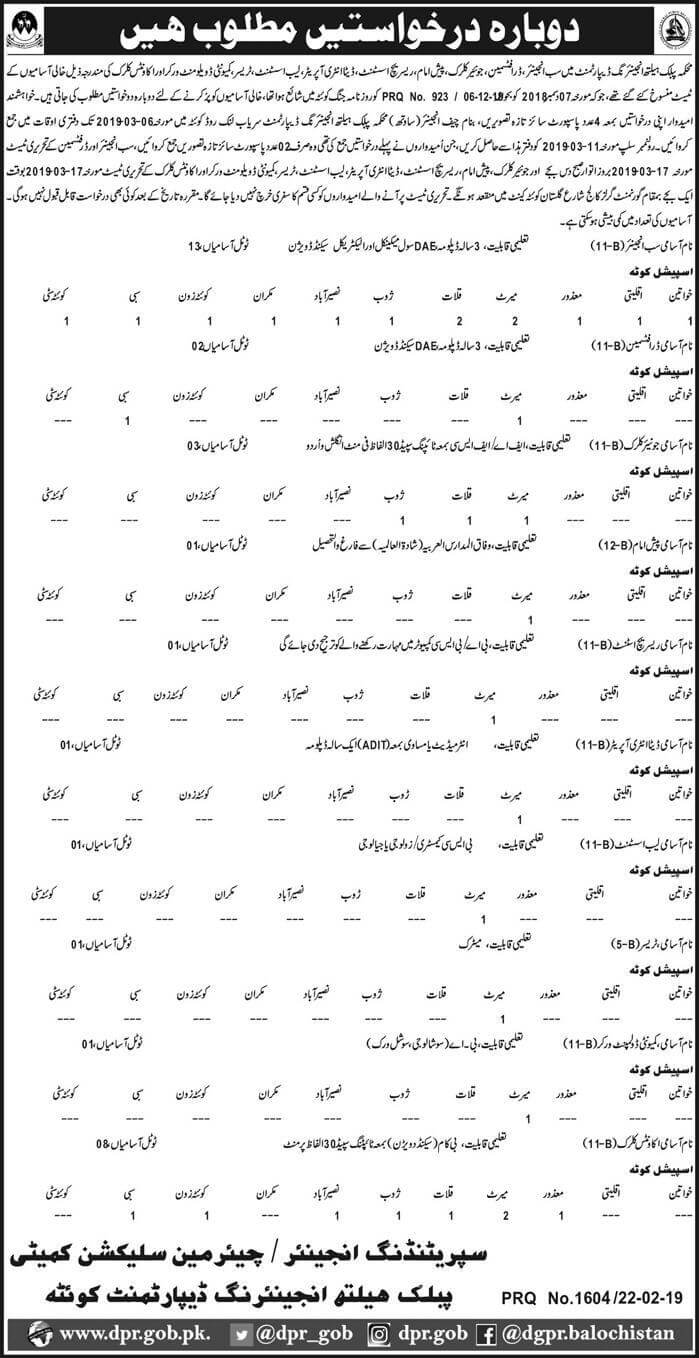 دوبارہ درخواستیں مطلوب ہیں
محکمہ پبلک ہیلتھ انجینئرنگ ڈیپارٹمنٹ میں سب انجینئر، ڈرافٹسمین، جونیئر کلرک، پیش امام، ریسرچ اسسٹنٹ، ڈیٹا انٹری آپریٹر، لیب اسسٹنٹ، ٹریسر، کمیونٹی ڈویلومنٹ ورکر اور اکاؤنٹس کلرک کی مندرجہ ذیل خالی آسامیوں کے
ٹیسٹ منسوخ کئے گئے تھے، جو کہ مورخہ 07 دسمبر 2018 کو بحوالہ PRQ No. 923 / 06-12-18 کو روزنامہ جنگ کوئٹہ میں شائع ہوا تھا، خالی آسامیوں کو پر کرنے کے لئے دوبارہ درخواستیں مطلوب کی جاتی ہیں۔ خواہشمند
امیدوار اپنی درخواستیں بمعہ 4 عدد پاسپورٹ سائز تازہ تصویریں، بنام چیف انجینئر (ساؤتھ) محکمہ پبلک ہیلتھ انجینئرنگ ڈیپارٹمنٹ سریاب لنک روڈ کوئٹہ میں مورخہ 06-03-2019 تک دفتری اوقات میں جمع
کروائیں۔ رولنمبر سلپ مورخہ 11-03-2019 کو دفتر ہذا سے حاصل کریں، جن اُمیدواروں نے پہلے درخواستیں جمع کی تھی وہ صرف 02 عدد پاسپورٹ سائز تازہ تصویریں جمع کروائیں، سب انجینئر اور ڈرافٹسمین کے تحریری ٹیسٹ
مورخہ 17-03-2019 بروز اتوار صبح دس بجے اور جونیئر کلرک، پیش امام، ریسرچ اسسٹنٹ، ڈیٹا انٹری آپریٹر، لیب اسسٹنٹ، ٹریسر، کمیونٹی ڈویلومنٹ ورکر اور اکاؤنٹس کلرک کے تحریری ٹیسٹ مورخہ 17-03-2019 بوقت
ایک بجے بمقام گورنمنٹ گرلز کالج شارع گلستان کوئٹہ کینٹ میں منعقد ہونگے۔ تحریری ٹیسٹ پر آنے والے امیدواروں کو کسی قسم کا سفری خرچ نہیں دیا جائے گا۔ مقررہ تاریخ کے بعد کوئی بھی درخواست قابل قبول نہیں ہوگی۔
آسامیوں کی تعداد میں کمی بیشی ہوسکتی ہے۔
نام آسامی سب انجینئر (B-11) تعلیمی قابلیت، 3 سالہ ڈپلومہ DAE سول میکینکل اور الیکٹریکل سیکنڈ ڈویژن ٹوٹل آسامیاں، 13
اسپیشل کوٹہ
خواتین اقلیتی معذور میرٹ قلات ژوب نصیر آباد مکران کوئٹہ زون سبی کوئٹہ سٹی
1 1 1 2 2 1 1 1 1 1 1
نام آسامی ڈرافٹسمین (B-11) تعلیمی قابلیت، 3 سالہ ڈپلومہ DAE سیکنڈ ڈویژن ٹوٹل آسامیاں، 02
اسپیشل کوٹہ
خواتین اقلیتی معذور میرٹ قلات ژوب نصیر آباد مکران کوئٹہ زون سبی کوئٹہ سٹی
--- --- --- 1 --- --- --- --- --- 1 ---
نام آسامی جونیئر کلرک (B-11) تعلیمی قابلیت، ایف اے/ایف ایس سی بمعہ ٹائپنگ سپیڈ 30 الفاظ فی منٹ انگلش و اُردو ٹوٹل آسامیاں، 03
اسپیشل کوٹہ
خواتین اقلیتی معذور میرٹ قلات ژوب نصیر آباد مکران کوئٹہ زون سبی کوئٹہ سٹی
--- --- --- 1 1 1 --- --- --- --- ---
نام آسامی پیش امام (B-12) تعلیمی قابلیت، وفاق المدارس العربیہ (شادۃ العالمیہ) سے فارغ و التحصیل ٹوٹل آسامیاں، 01
اسپیشل کوٹہ
خواتین اقلیتی معذور میرٹ قلات ژوب نصیر آباد مکران کوئٹہ زون سبی کوئٹہ سٹی
--- --- --- 1 --- --- --- --- --- --- ---
نام آسامی ریسرچ اسٹنٹ (B-11) تعلیمی قابلیت، بی اے/بی ایس سی کمپیوٹر میں مہارت رکھنے والے کو ترجیح دی جائے گی ٹوٹل آسامیاں، 01
اسپیشل کوٹہ
خواتین اقلیتی معذور میرٹ قلات ژوب نصیر آباد مکران کوئٹہ زون سبی کوئٹہ سٹی
--- --- --- 1 --- --- --- --- --- --- ---
نام آسامی ڈیٹا انٹری آپریٹر (B-11) تعلیمی قابلیت، انٹرمیڈیٹ یا مساوی بمعہ (ADIT) ایک سالہ ڈپلومہ ٹوٹل آسامیاں، 01
اسپیشل کوٹہ
خواتین اقلیتی معذور میرٹ قلات ژوب نصیر آباد مکران کوئٹہ زون سبی کوئٹہ سٹی
--- --- --- 1 --- --- --- --- --- --- ---
نام آسامی لیب اسسٹنٹ (B-11) تعلیمی قابلیت، بی ایس سی کیمسٹری/زولوجی یا جیالوجی ٹوٹل آسامیاں، 01
اسپیشل کوٹہ
خواتین اقلیتی معذور میرٹ قلات ژوب نصیر آباد مکران کوئٹہ زون سبی کوئٹہ سٹی
--- --- --- 1 --- --- --- --- --- --- ---
نام آسامی، ٹریسر (B-5) تعلیمی قابلیت، میٹرک ٹوٹل آسامیاں، 01
اسپیشل کوٹہ
خواتین اقلیتی معذور میرٹ قلات ژوب نصیر آباد مکران کوئٹہ زون سبی کوئٹہ سٹی
--- --- --- 1 --- --- --- --- --- --- ---
نام آسامی، کمیونٹی ڈولپمنٹ ورکر (B-11) تعلیمی قابلیت، بی۔اے (سوشالوجی، سوشل ورک) ٹوٹل آسامیاں، 01
اسپیشل کوٹہ
خواتین اقلیتی معذور میرٹ قلات ژوب نصیر آباد مکران کوئٹہ زون سبی کوئٹہ سٹی
--- --- --- 1 --- --- --- --- --- --- ---
نام آسامی اکاؤنٹس کلرک (B-11) تعلیمی قابلیت، بی کام (سیکنڈ دویژن) بمعہ ٹائپٹنگ سپیڈ 30 الفاظ پر منٹ ٹوٹل آسامیاں، 08
اسپیشل کوٹہ
خواتین اقلیتی معذور میرٹ قلات ژوب نصیر آباد مکران کوئٹہ زون سبی کوئٹہ سٹی
--- --- 1 2 1 1 1 --- 1 1 ---
سپریٹنڈنگ انجینئر / چیئرمین سلیکشن کمیٹی
پبلک ہیلتھ انجینئرنگ ڈیپارٹمنٹ کوئٹہ
PRQ No.1604/22-02-19
www.dpr.gob.pk. @dpr_gob dpr.gob @dgpr.balochistan